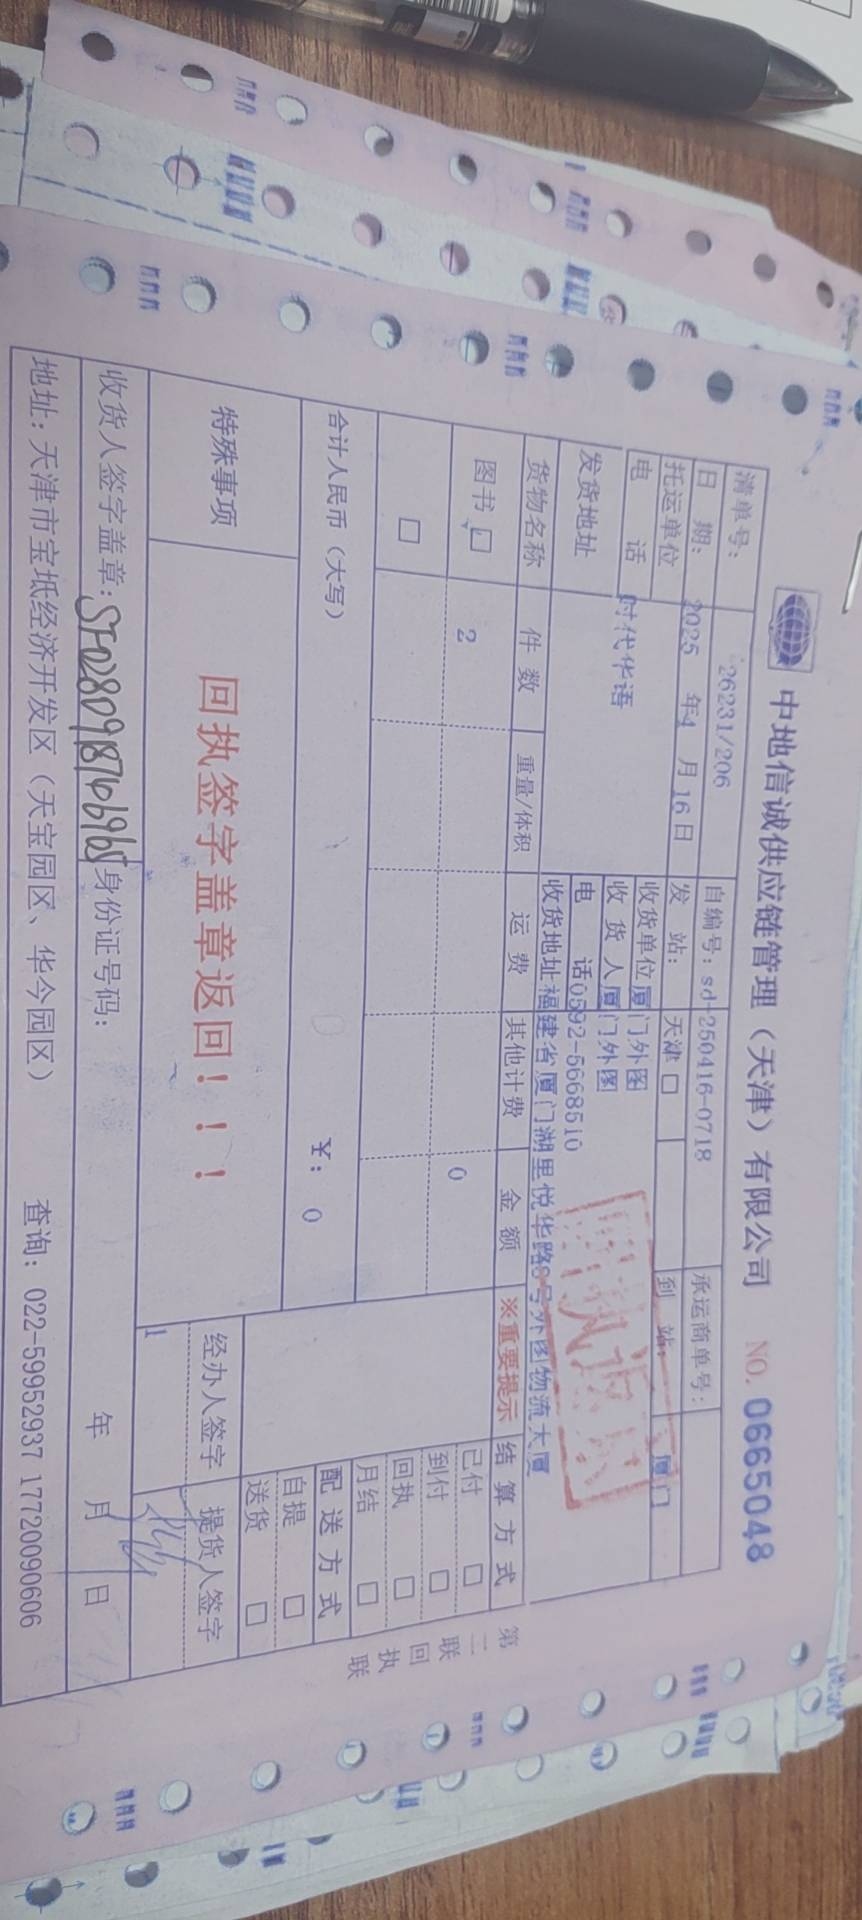 中地信诚供应链管理（天津）有限公司 NO. 0665048
清单号： 26231/206 自编号：sd-250416-0718 承运商单号：
日 期： 2025 年4 月16日 发 站： 天津□ 到 站： 厦门
托运单位 时代华语 收货单位厦门外图
电 话 收 货 人厦门外图
发货地址 电 话0592-5668510
收货地址福建省厦门湖里悦华路8号外图物流大厦
货物名称 件 数 重量/体积 运 费 其他计费 金 额 ※重要提示 结 算 方 式
图书□ 2 0 已付 □
到付 □
□ 回执 □
月结 □
合计人民币（大写） ￥：0 配 送 方 式
自提 □
送货 □
特殊事项 回执签字盖章返回！！！ 经办人签字 提货人签字
1
收货人签字盖章：SF0280918746965 身份证号码： 年 月 日
地址：天津市宝坻经济开发区（天宝园区、华今园区） 查询：022-59952937 17720090606
第二联 回执联
回执返回